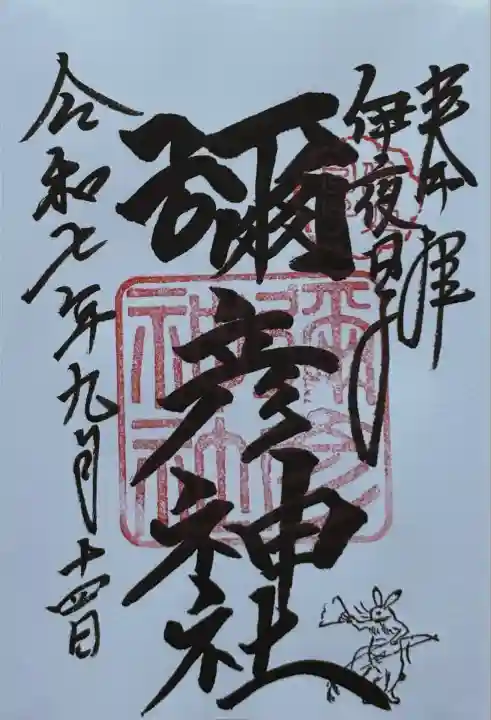 奉拝
伊夜日子
彌彦神社
令和七年九月十四日
彌彦
神社